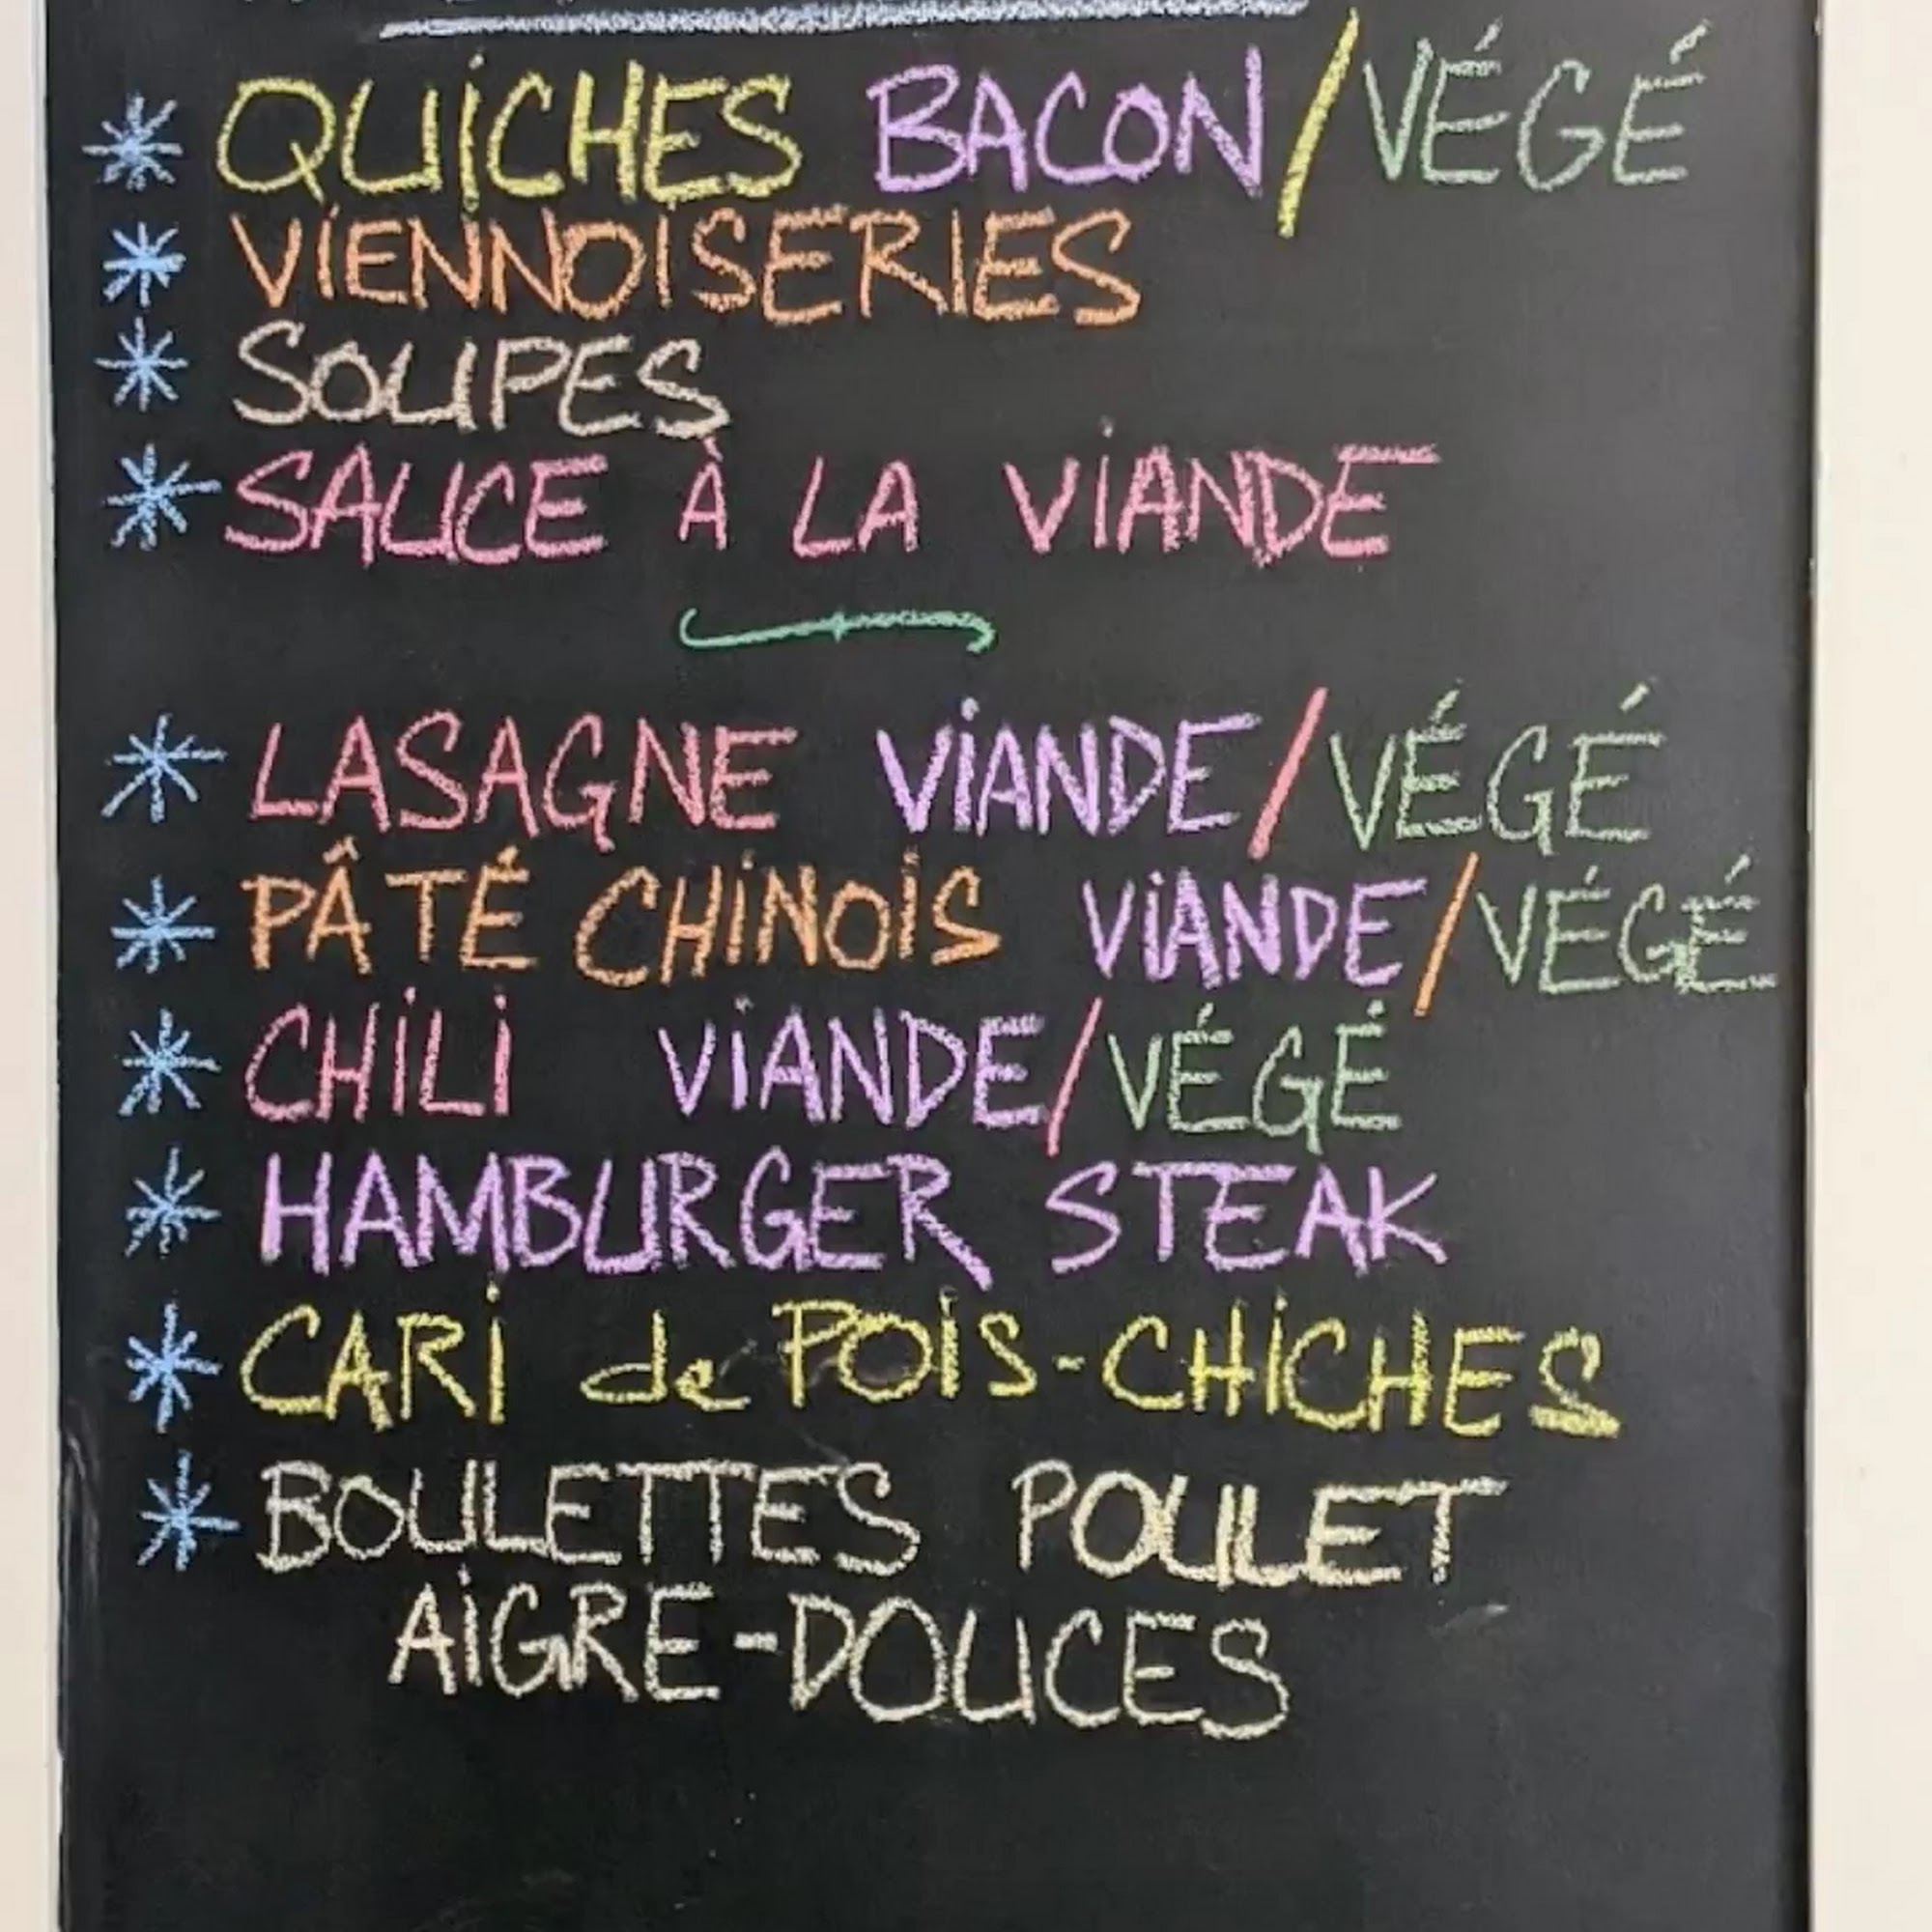 * QUICHES BACON/VÉGÉ
* VIENNOISERIES
* SOUPES
* SAUCE À LA VIANDE
* LASAGNE VIANDE/VÉGÉ
* PÂTÉ CHINOIS VIANDE/VÉGÉ
* CHILI VIANDE/VÉGÉ
* HAMBURGER STEAK
* CARI de POIS-CHICHES
* BOULETTES POULET
AIGRE-DOUCES